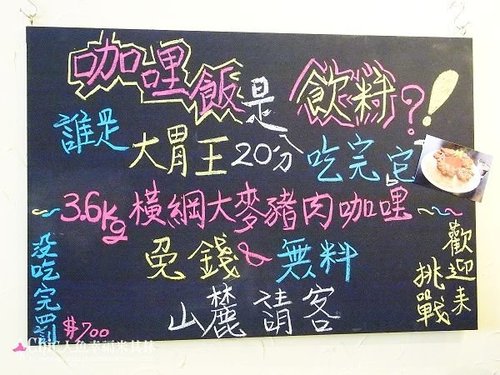 咖哩飯是飲料?!
誰是大胃王20分吃完它
~3.6kg橫綱大麥豬肉咖哩~
免錢&無料
山麓請客
沒吃完罰
$700
歡迎來
挑戰